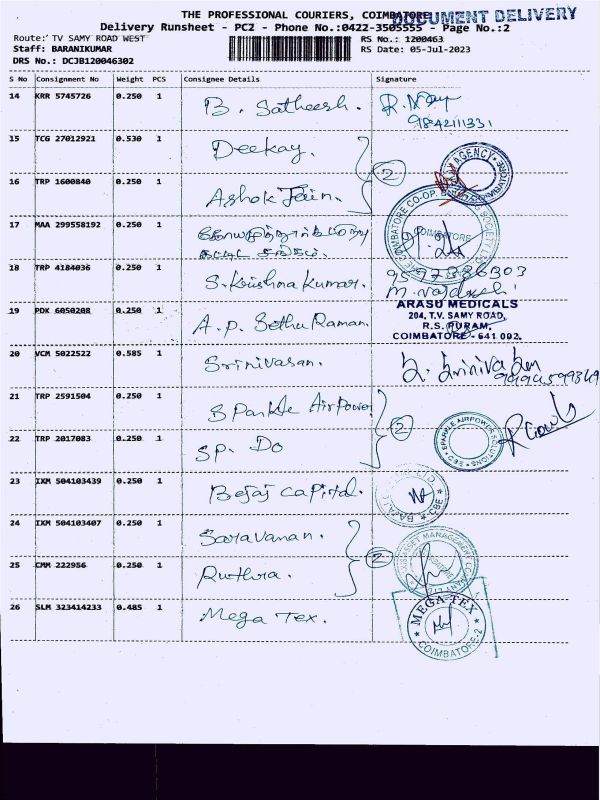 THE PROFESSIONAL COURIERS, COIMBATORE
DOCUMENT DELIVERY
Delivery Runsheet - PC2 - Phone No.:0422-3505555 - Page No.:2
Route: TV SAMY ROAD WEST
RS No.: 1200463
Staff: BARANIKUMAR
RS Date: 05-Jul-2023
DRS No.: DCJB120046302
S No Consignment No Weight PCS Consignee Details Signature
14 KRR 5745726 0.250 1 B. Satheesh.
9842111331
15 TCG 27012921 0.530 1 Deekay.
2
AGENCY
16 TRP 1600840 0.250 1 Ashok Jain.
17 MAA 299558192 0.250 1
COIMBATORE CO-OP. SOCIETY
COIMBATORE
18 TRP 4184036 0.250 1 S. Krishna Kumar.
9597386303
19 PDK 6050208 0.250 1 A.P. Sethu Raman.
ARASU MEDICALS
204, T.V. SAMY ROAD,
R.S. PURAM,
COIMBATORE - 641 002.
20 VCM 5022522 0.585 1 Srinivasan.
21 TRP 2591504 0.250 1 Sparkle Airpower
2
SPARKLE AIRPOWER SOLUTIONS
CBE
22 TRP 2017083 0.250 1 SP. Do
23 IXM 504103439 0.250 1 Bajaj Capital.
24 IXM 504103407 0.250 1 Saravanan.
2
ASSET MANAGEMENT
25 CMM 222956 0.250 1 Ruthra.
26 SLM 323414233 0.485 1 Mega Tex.
MEGA TEX
COIMBATORE-2